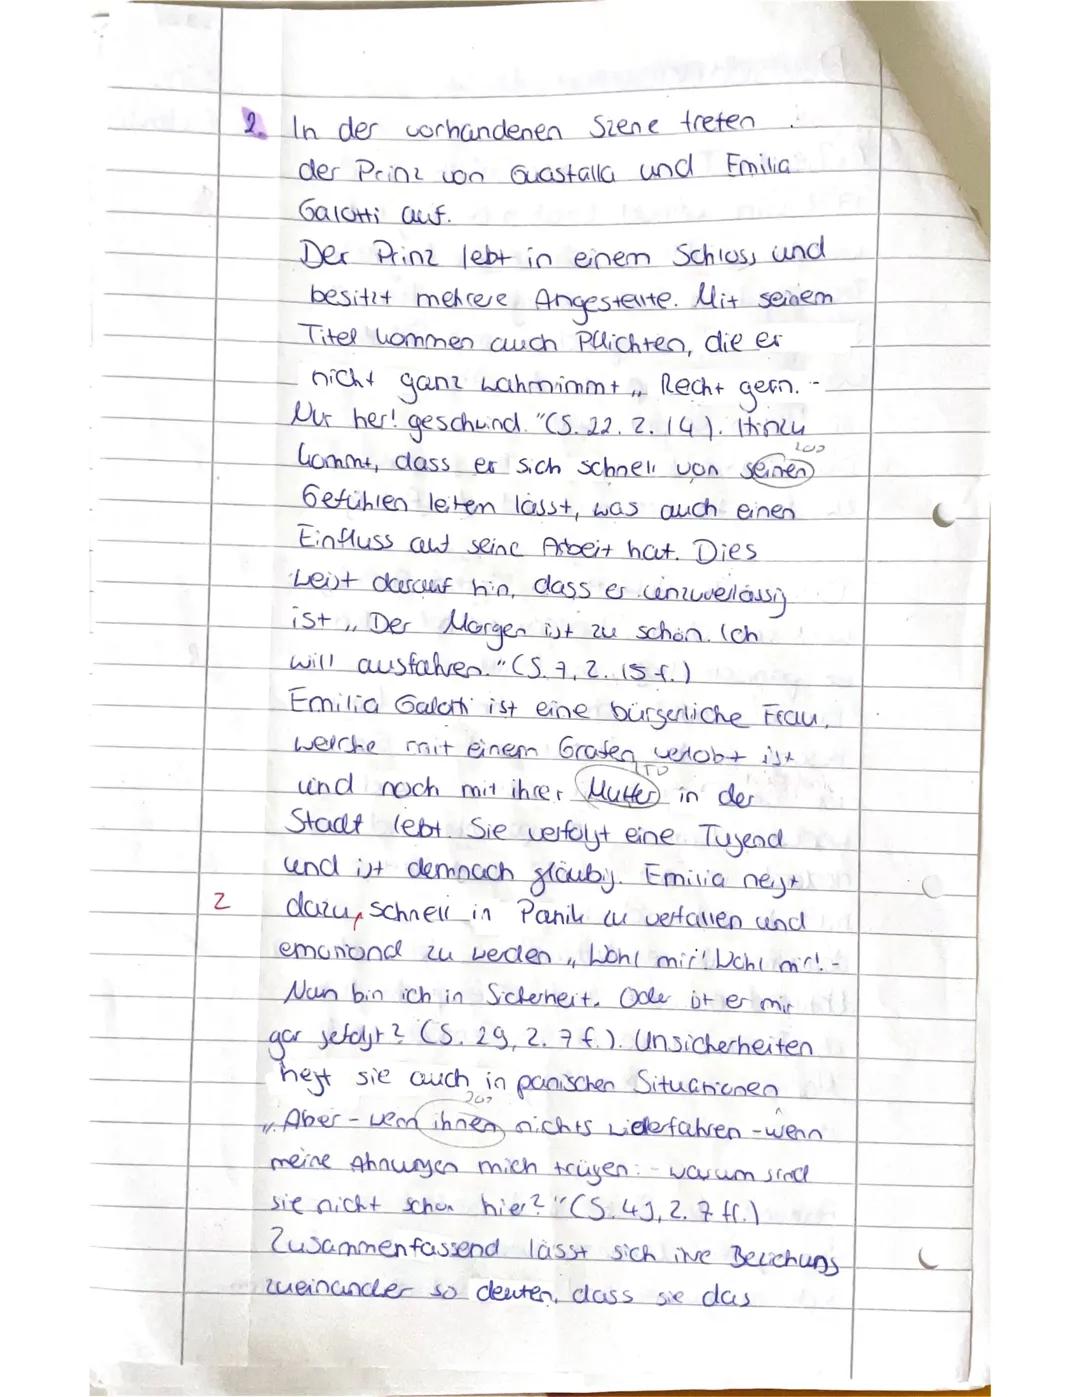 2. In der vorhandenen Szene treten
der Prinz von Guastalla und Emilia
Galotti auf.
Der Prinz lebt in einem Schloss und
besitzt mehrere Angestellte. Mit seinem
Titel kommen auch Pflichten, die er
nicht ganz wahrnimmt „ Recht gern. -
Nur her! geschwind. "(S. 22. Z. 14). Hinzu
kommt, dass er sich schnell von seinen
200
Gefühlen leiten lässt, was auch einen
Einfluss auf seine Arbeit hat. Dies
weist darauf hin, dass er unzuverlässig
ist „ Der Morgen ist zu schön. Ich
will ausfahren. "(S. 7, Z. 15 f.)
Emilia Galotti ist eine bürgerliche Frau,
welche mit einem Grafen verlobt ist
und noch mit ihrer Mutter in der
Stadt lebt. Sie verfolgt eine Tugend
und ist demnach gläubig. Emilia neigt
2 dazu, schnell in Panik zu verfallen und
emotional zu werden „ Wohl mir! Wohl mir! -
Nun bin ich in Sicherheit. Oder ist er mir
gar gefolgt? (S. 29, Z. 7 f.). Unsicherheiten
hegt sie auch in panischen Situationen
„ Aber - wenn ihnen nichts wiederfahren - wenn
meine Ahnungen mich trügen: - warum sind
sie nicht schon hier? "(S. 49, Z. 7 ff.)
Zusammenfassend lässt sich ihre Beziehung
zueinander so deuten, dass sie das